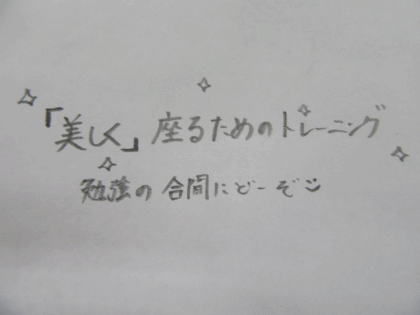 「美しく」座るためのトレーニング
勉強の合間にどーぞ